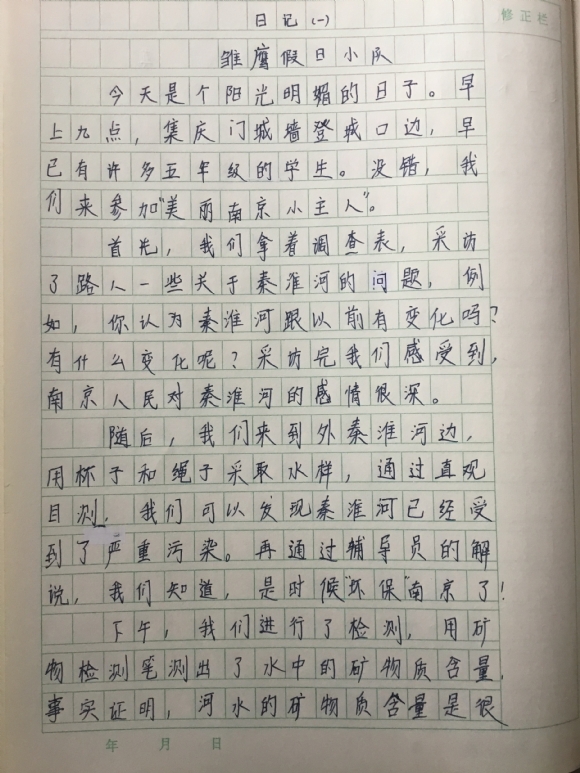 修正栏
日记(一)
雏鹰假日小队
今天是个阳光明媚的日子。早
上九点，集庆门城墙登城口边，早
已有许多五年级的学生。没错，我
们来参加“美丽南京小主人”。
首先，我们拿着调查表，采访
了路人一些关于秦淮河的问题，例
如，你认为秦淮河跟以前有变化吗？
有什么变化呢？采访完我们感受到，
南京人民对秦淮河的感情很深。
随后，我们来到外秦淮河边，
用杯子和绳子采取水样，通过直观
目测，我们可以发现秦淮河已经受
到了严重污染。再通过辅导员的解
说，我们知道，是时候“环保”南京了！
下午，我们进行了检测，用矿
物检测笔测出了水中的矿物质含量，
事实证明，河水的矿物质含量是很
年 月 日